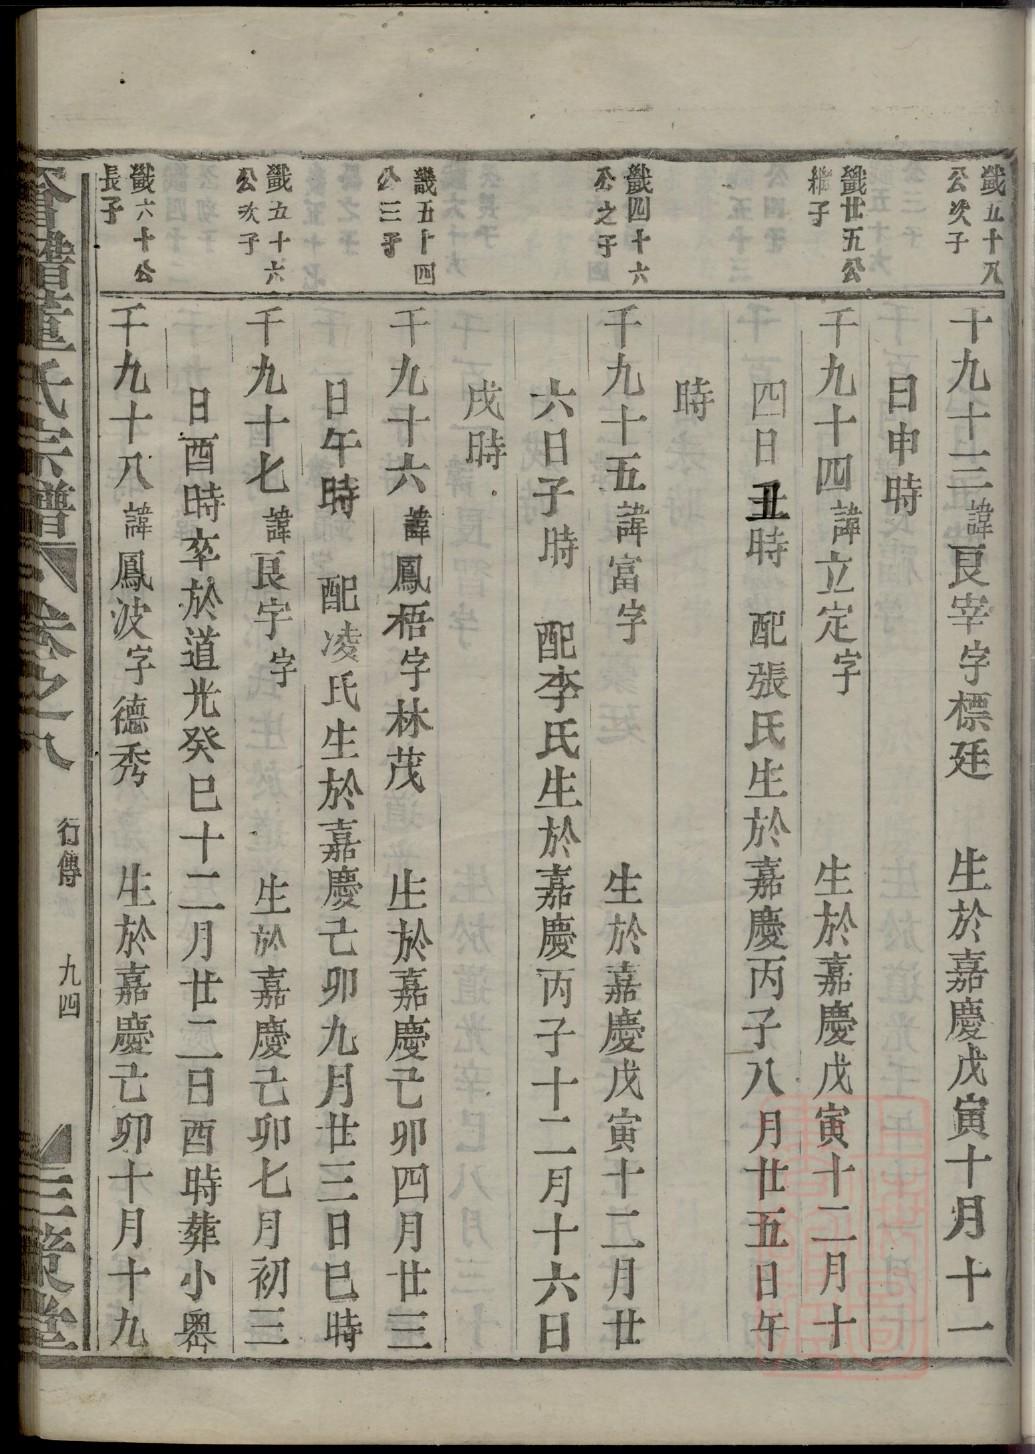 五十八
公次子
千九十三諱良宰字標廷 生於嘉慶戊寅十月十一
日申時
廿五公
繼子
千九十四諱立定字 生於嘉慶戊寅十二月十
四日丑時 配張氏生於嘉慶丙子八月廿五日午
時
四十六
公之子
千九十五諱富字 生於嘉慶戊寅十二月廿
六日子時 配李氏生於嘉慶丙子十二月十六日
戌時
五十四
公三子
千九十六諱鳳梧字林茂 生於嘉慶己卯四月廿三
日午時 配凌氏生於嘉慶己卯九月廿三日巳時
五十六
公次子
千九十七諱良字字 生於嘉慶己卯七月初三
日酉時卒於道光癸巳十二月廿二日酉時葬小嶴
六十公
長子
千九十八諱鳳波字德秀 生於嘉慶己卯十月十九
董氏宗譜 卷之八 行傳 九四 三策堂